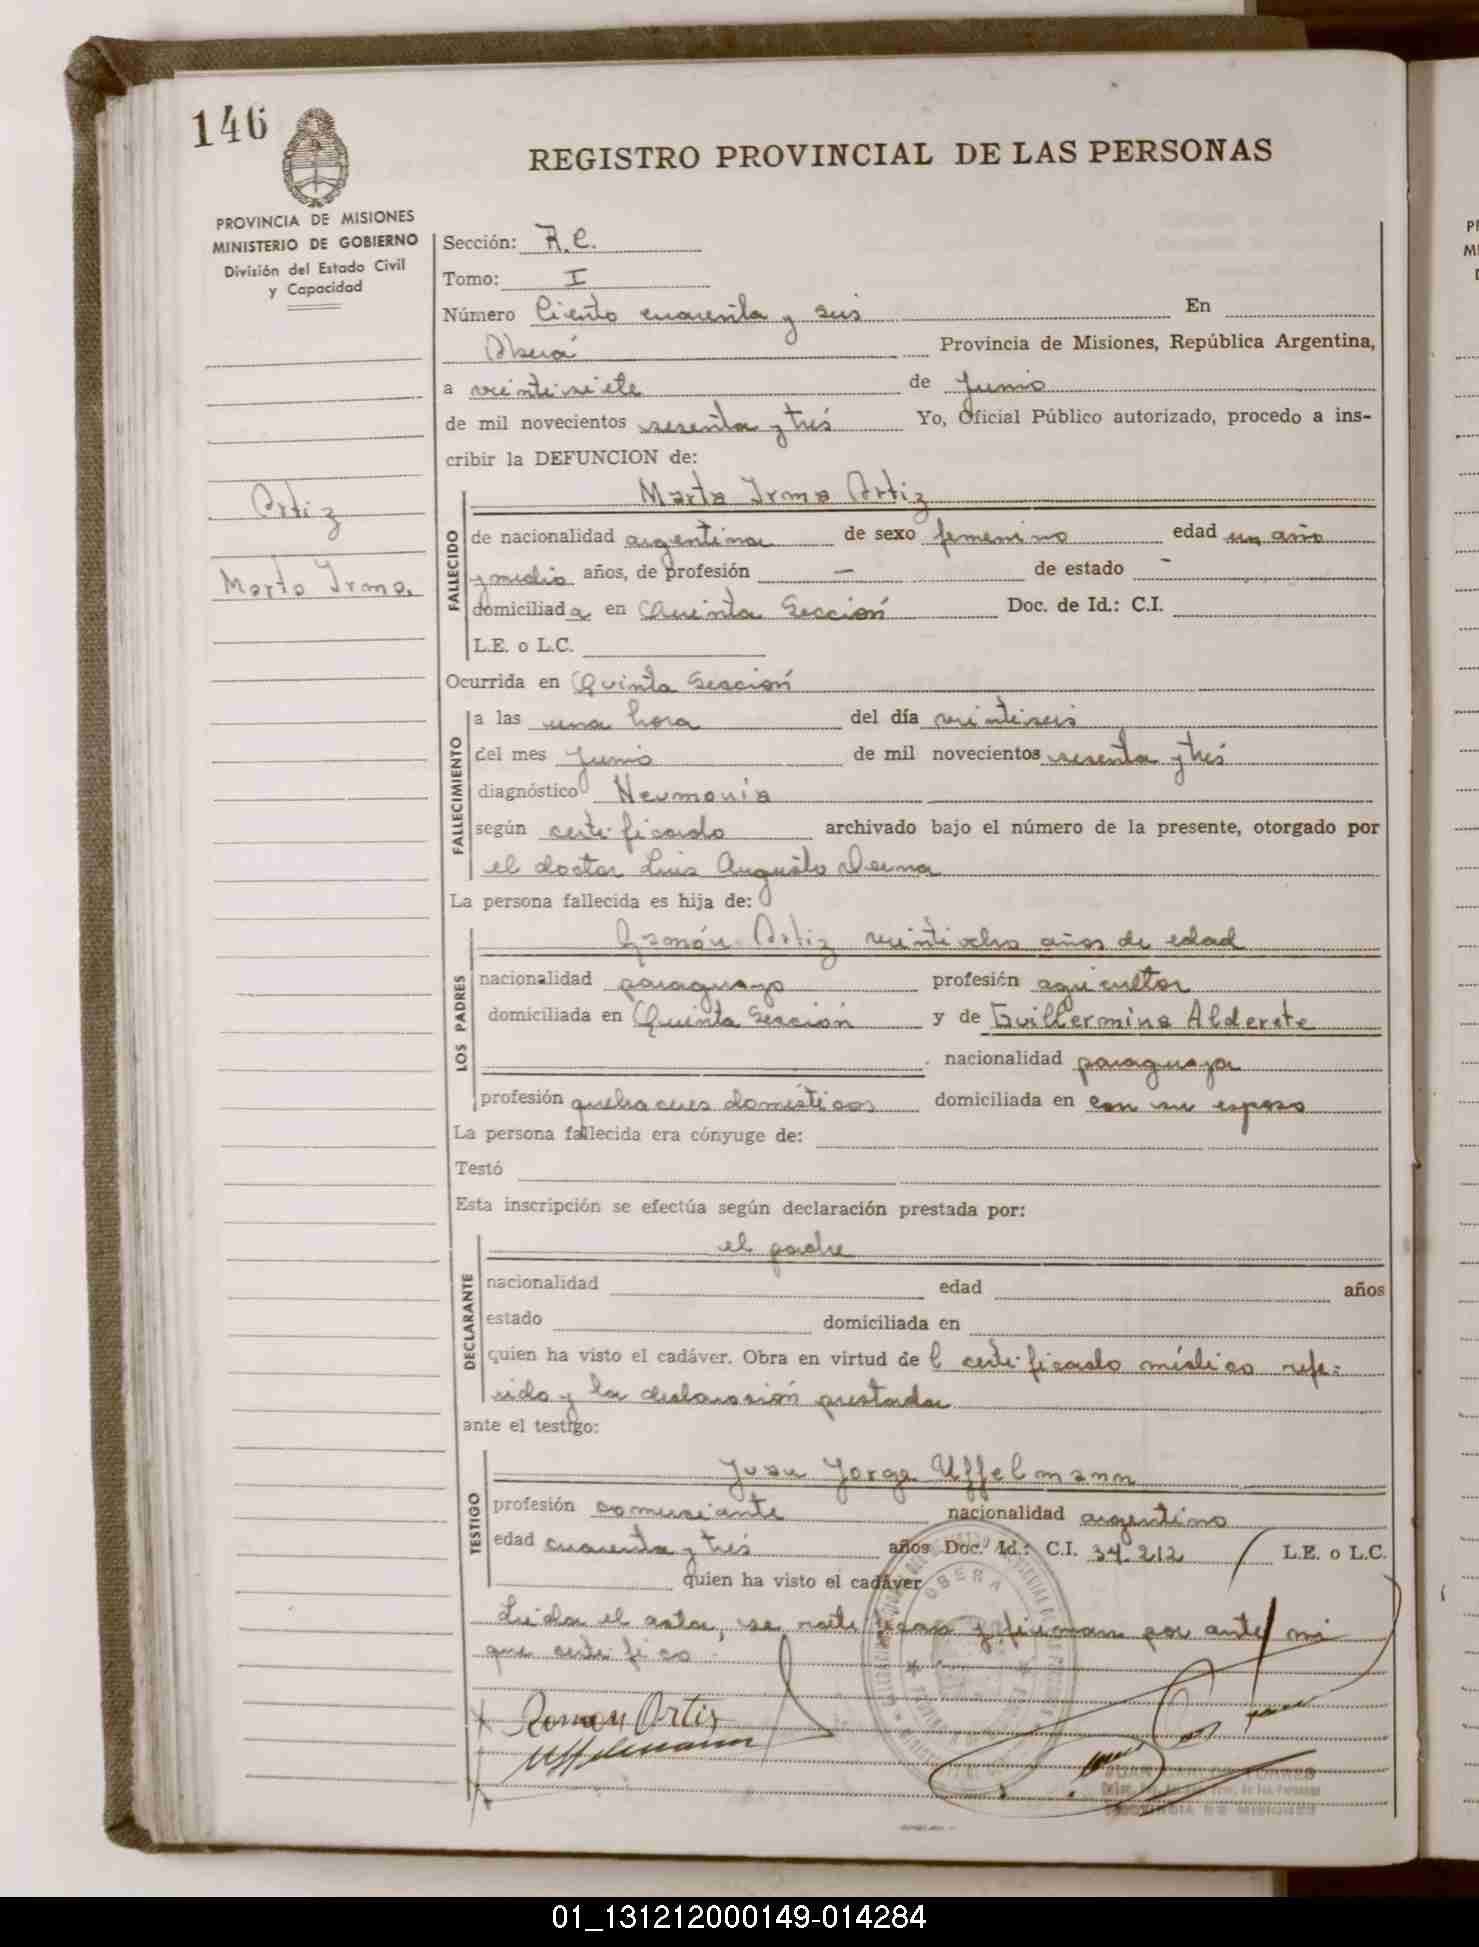 146
REGISTRO PROVINCIAL DE LAS PERSONAS
PROVINCIA DE MISIONES
MINISTERIO DE GOBIERNO
División del Estado Civil
y Capacidad
Ortiz
Marta Irma.
Sección: R.C.
Tomo: I
Número Ciento cuarenta y seis En
Oberá Provincia de Misiones, República Argentina,
a veintisiete de Junio
de mil novecientos sesenta y tres Yo, Oficial Público autorizado, procedo a ins-
cribir la DEFUNCION de:
FALLECIDO
Marta Irma Ortiz
de nacionalidad argentina de sexo femenino edad un año
y medio años, de profesión — de estado -
domiciliada en Quinta Sección Doc. de Id.: C.I.
L.E. o L.C.
Ocurrida en Quinta Sección
FALLECIMIENTO
a las una hora del día veintiseis
del mes Junio de mil novecientos sesenta y tres
diagnóstico Neumonía
según certificado archivado bajo el número de la presente, otorgado por
el doctor Luis Augusto Derna
La persona fallecida es hija de:
LOS PADRES
Ramón Ortiz veintiocho años de edad
nacionalidad paraguayo profesión agricultor
domiciliada en Quinta Sección y de Guillermina Alderete
nacionalidad paraguaya
profesión quehaceres domésticos domiciliada en con su esposo
La persona fallecida era cónyuge de:
Testó
Esta inscripción se efectúa según declaración prestada por:
DECLARANTE
el padre
nacionalidad edad años
estado domiciliada en
quien ha visto el cadáver. Obra en virtud del certificado médico refe-
rido y la declaración prestada
ante el testigo:
TESTIGO
Juan Jorge Uffelmann
profesión comerciante nacionalidad argentino
edad cuarenta y tres años Doc. Id.: C.I. 34.212 / L.E. o L.C.
quien ha visto el cadáver
Leída el acta, se ratifican y firman por ante mi
que certifico.
OBERA
Roman Ortiz
Uffelmann
PROVINCIA DE MISIONES
01_131212000149-014284